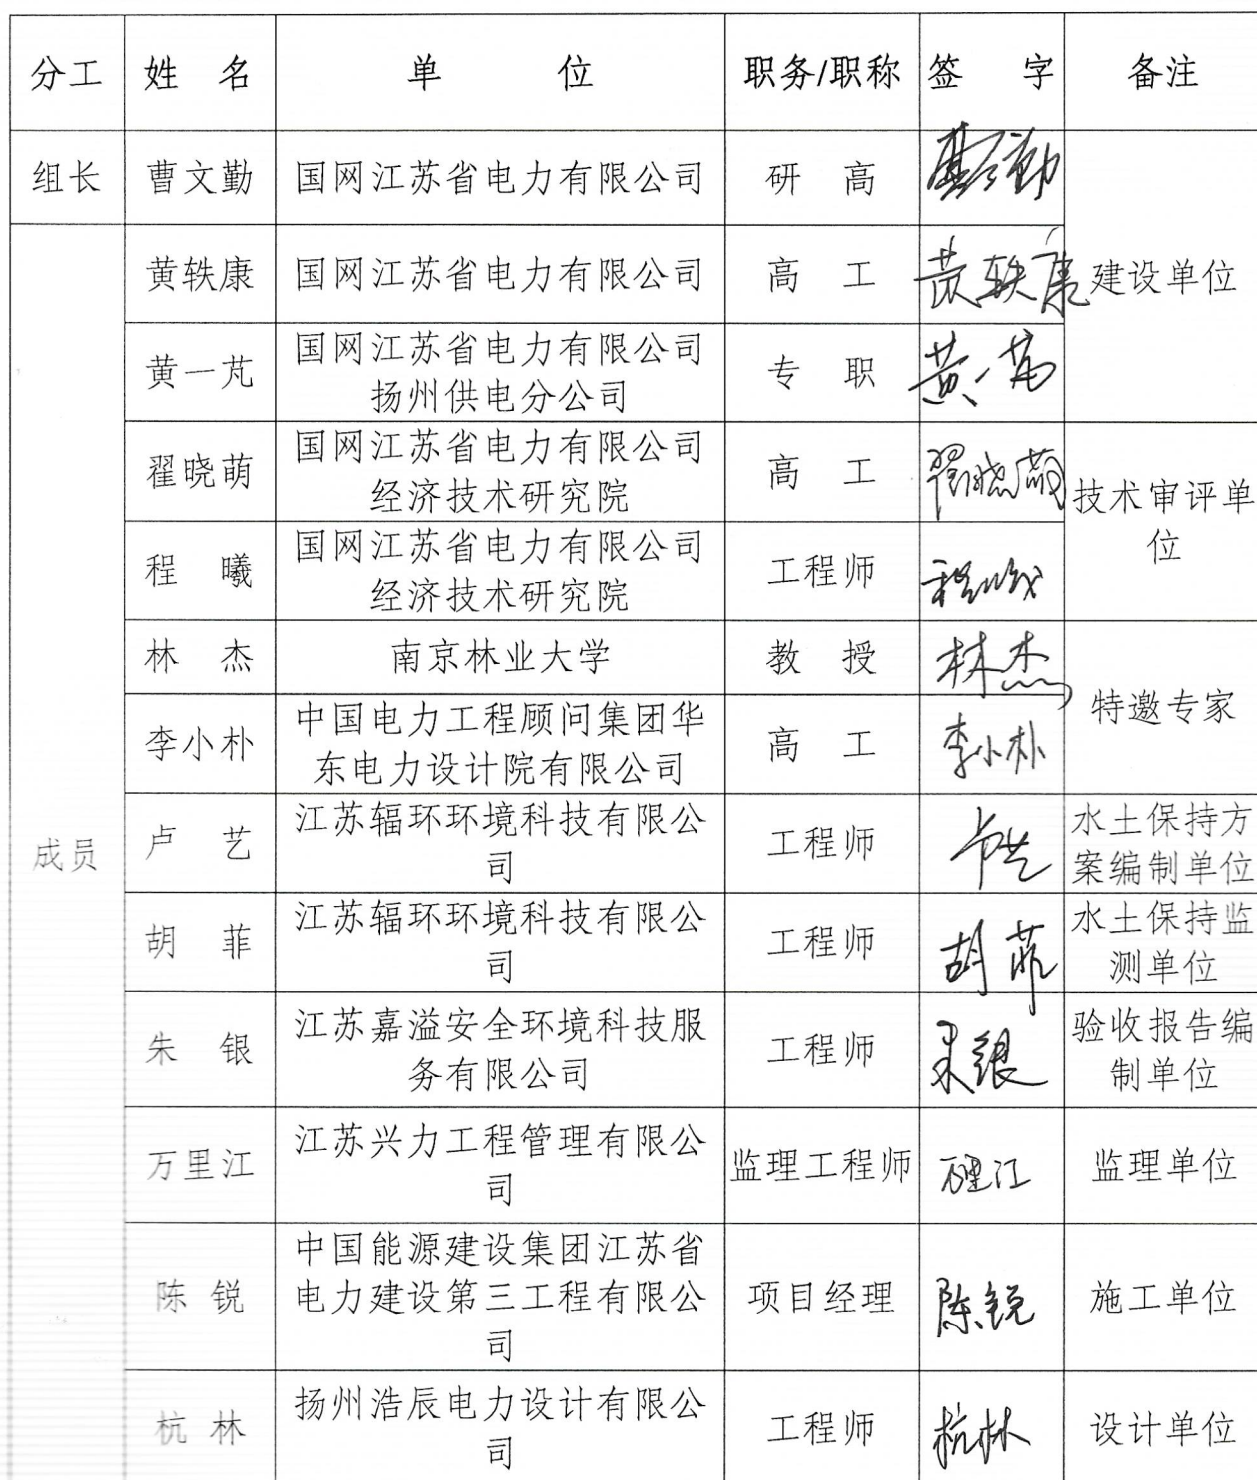 分工 姓 名 单 位 职务/职称 签 字 备注
组长 曹文勤 国网江苏省电力有限公司 研 高 曹文勤
黄轶康 国网江苏省电力有限公司 高 工 黄轶康 建设单位
黄一芃 国网江苏省电力有限公司
扬州供电分公司 专 职 黄一芃
翟晓萌 国网江苏省电力有限公司
经济技术研究院 高 工 翟晓萌 技术审评单
位
程 曦 国网江苏省电力有限公司
经济技术研究院 工程师 程曦
林 杰 南京林业大学 教 授 林杰
特邀专家
李小朴 中国电力工程顾问集团华
东电力设计院有限公司 高 工 李小朴
成员
卢 艺 江苏辐环环境科技有限公
司 工程师 卢艺 水土保持方
案编制单位
胡 菲 江苏辐环环境科技有限公
司 工程师 胡菲 水土保持监
测单位
朱 银 江苏嘉溢安全环境科技服
务有限公司 工程师 朱银 验收报告编
制单位
万里江 江苏兴力工程管理有限公
司 监理工程师 万里江 监理单位
陈 锐 中国能源建设集团江苏省
电力建设第三工程有限公
司 项目经理 陈锐 施工单位
杭 林 扬州浩辰电力设计有限公
司 工程师 杭林 设计单位